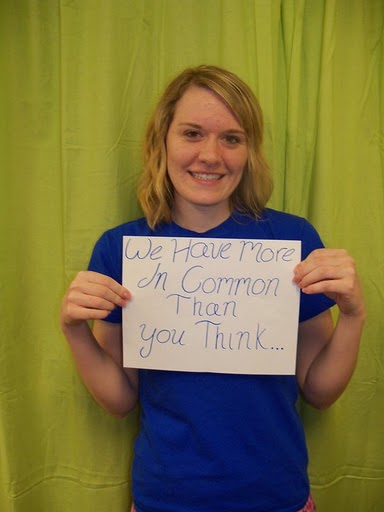 We Have More
In Common
Than
you Think...